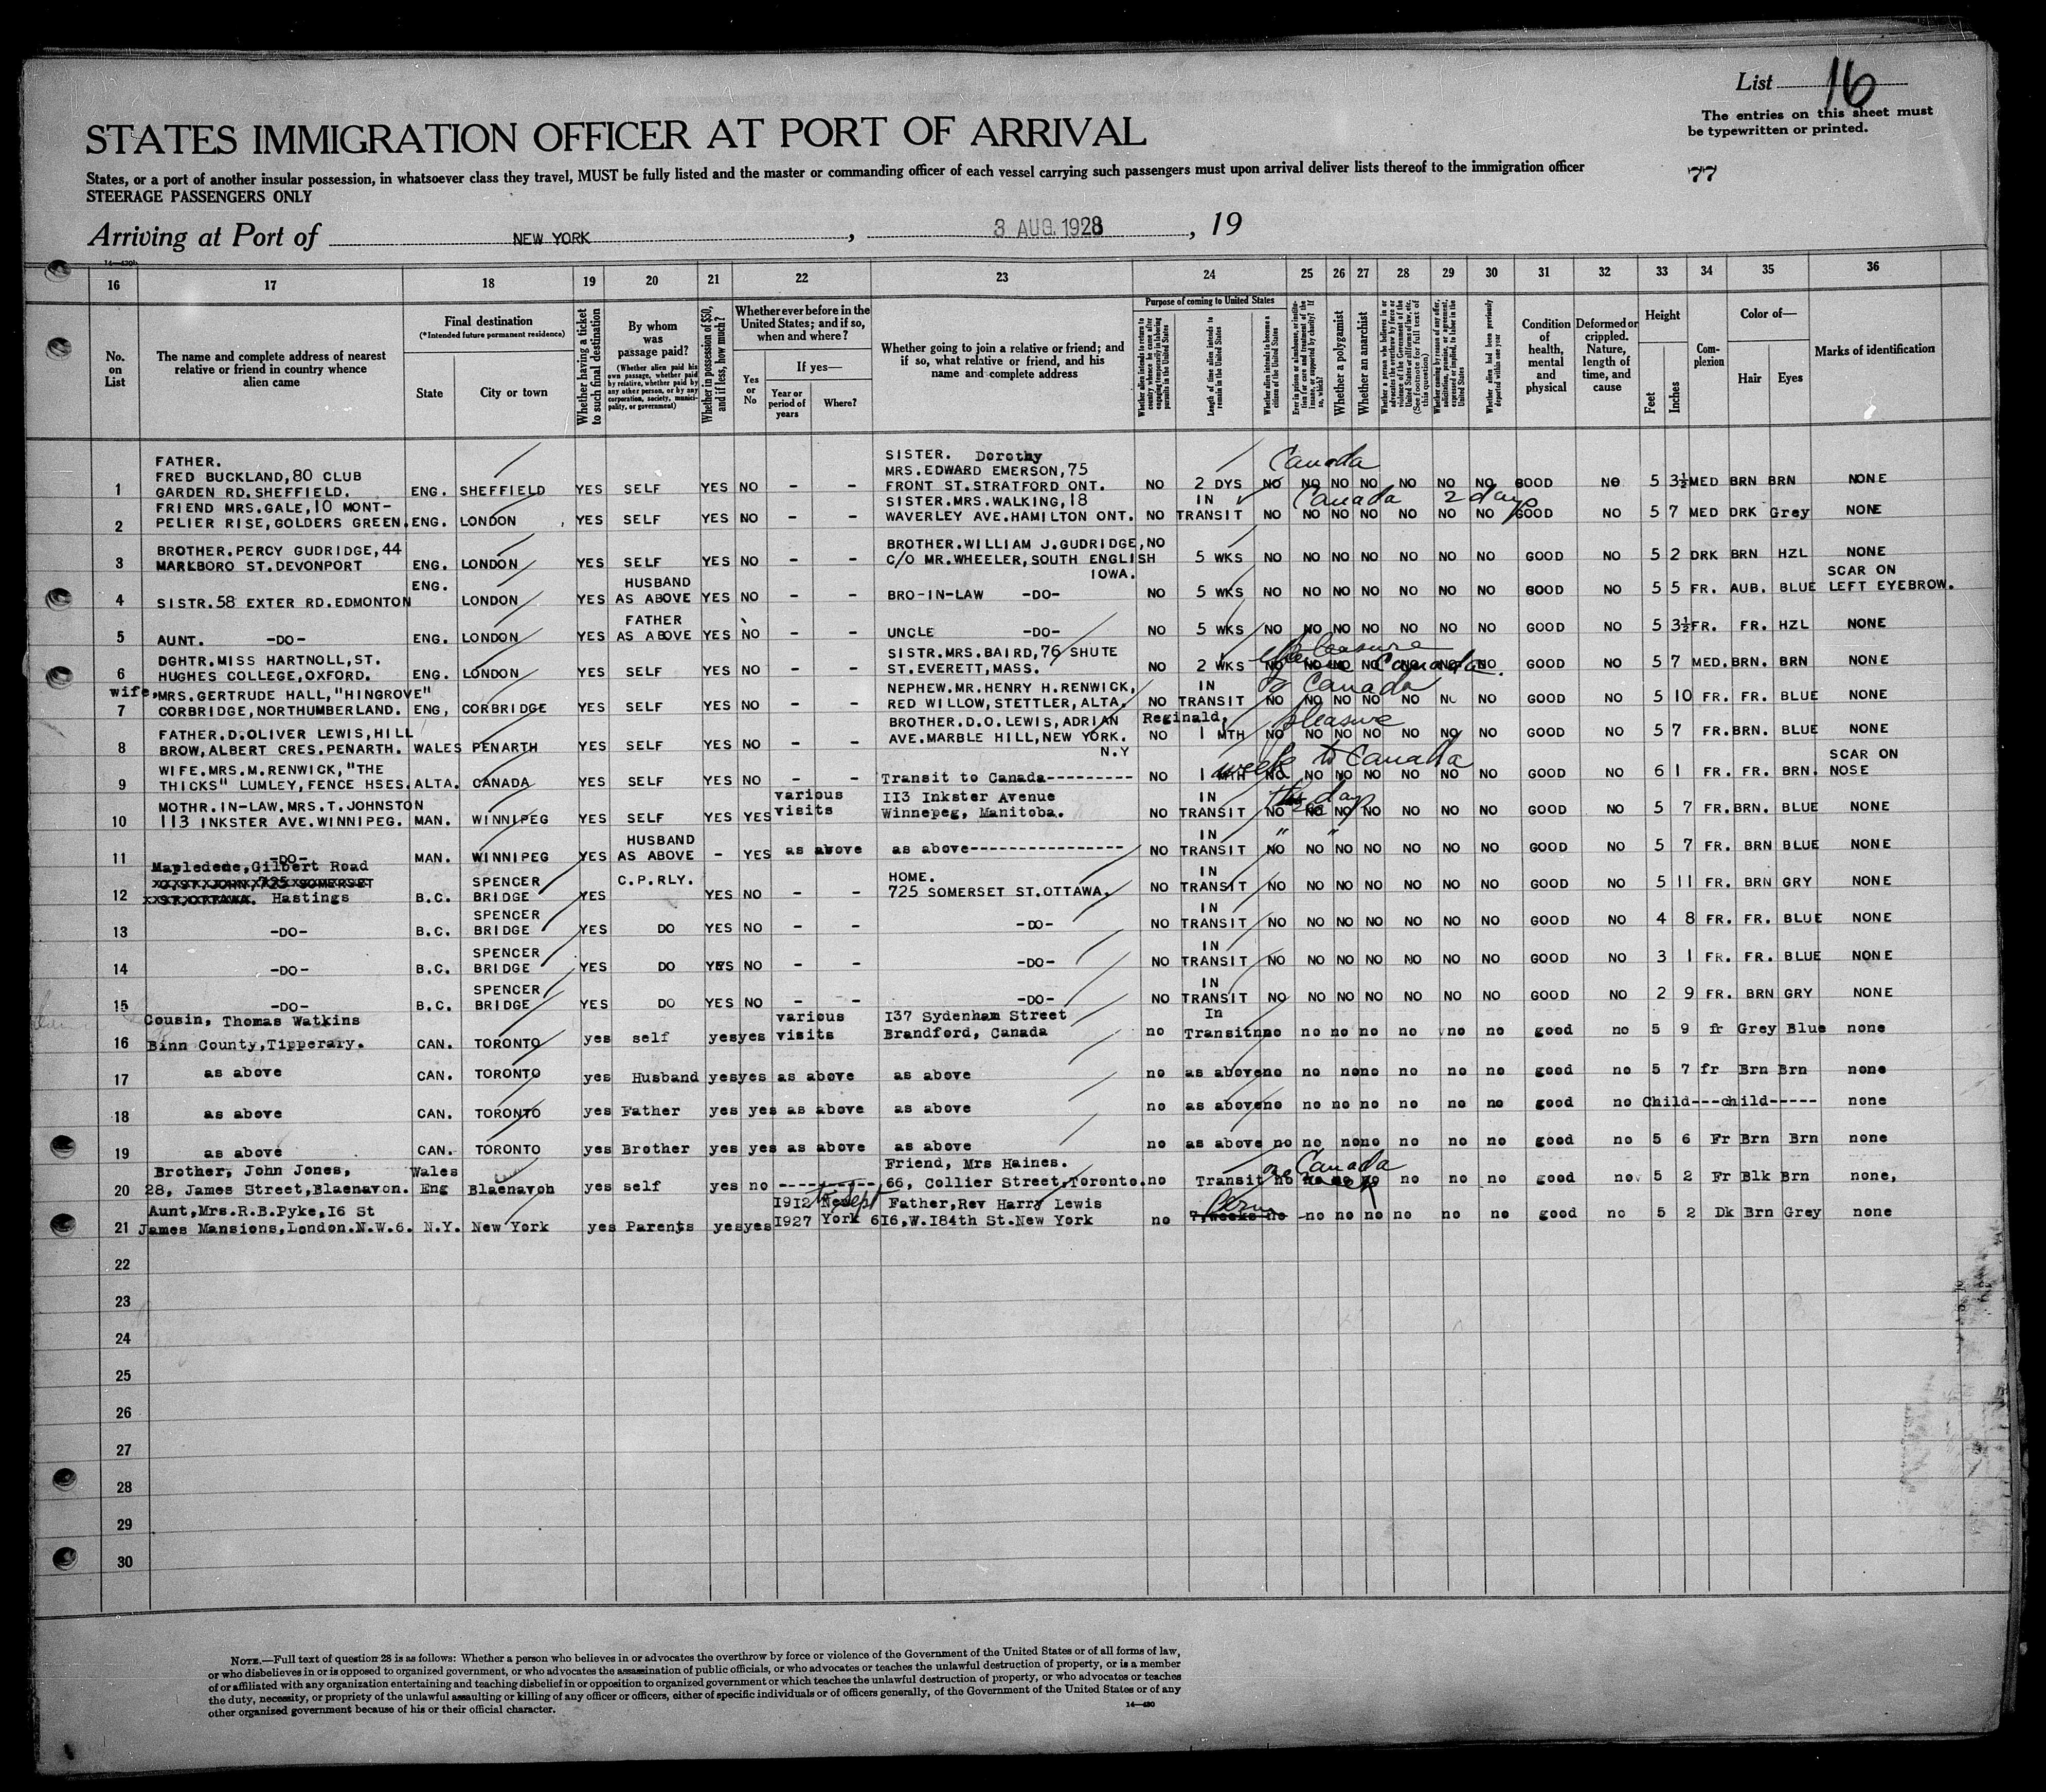 List 16
The entries on this sheet must
be typewritten or printed.
77
STATES IMMIGRATION OFFICER AT PORT OF ARRIVAL
States, or a port of another insular possession, in whatsoever class they travel, MUST be fully listed and the master or commanding officer of each vessel carrying such passengers must upon arrival deliver lists thereof to the immigration officer
STEERAGE PASSENGERS ONLY
Arriving at Port of NEW YORK, 3 AUG. 1928, 19
16 17 18 19 20 21 22 23 24 25 26 27 28 29 30 31 32 33 34 35 36
No. on List
The name and complete address of nearest relative or friend in country whence alien came
Final destination (*Intended future permanent residence)
State
City or town
Whether having a ticket to such final destination
By whom was passage paid?
(Whether alien paid his own passage, whether paid by relative, whether paid by any other person, or by any corporation, society, municipality, or government)
Whether in possession of $50, and if less, how much?
Whether ever before in the United States; and if so, when and where?
Yes or No
If yes—
Year or period of years
Where?
Whether going to join a relative or friend; and if so, what relative or friend, and his name and complete address
Purpose of coming to United States
Length of time alien intends to remain in the United States
Whether alien intends to become a citizen of the United States
Whether a polygamist
Whether an anarchist
Condition of health, mental and physical
Deformed or crippled. Nature, length of time, and cause
Height
Feet
Inches
Complexion
Color of—
Hair
Eyes
Marks of identification
1 FATHER. FRED BUCKLAND, 80 CLUB GARDEN RD. SHEFFIELD. ENG. SHEFFIELD YES SELF YES NO - - SISTER. Dorothy MRS. EDWARD EMERSON, 75 FRONT ST. STRATFORD ONT. NO 2 DYS NO NO NO NO NO NO NO GOOD NO 5 3½ MED BRN BRN NONE
Canada
2 FRIEND MRS. GALE, 10 MONTPELIER RISE, GOLDERS GREEN. ENG. LONDON YES SELF YES NO - - SISTER. MRS. WALKING, 18 WAVERLEY AVE. HAMILTON ONT. NO IN TRANSIT NO NO NO NO NO NO NO GOOD NO 5 7 MED DRK Grey NONE
Canada 2 days
3 BROTHER. PERCY GUDRIDGE, 44 MARLBORO ST. DEVONPORT ENG. LONDON YES SELF YES NO - - BROTHER. WILLIAM J. GUDRIDGE, C/O MR. WHEELER, SOUTH ENGLISH IOWA. NO 5 WKS NO NO NO NO NO NO NO GOOD NO 5 2 DRK BRN HZL NONE
4 SISTR. 58 EXTER RD. EDMONTON ENG. LONDON YES HUSBAND AS ABOVE YES NO - - BRO-IN-LAW -DO- NO 5 WKS NO NO NO NO NO NO NO GOOD NO 5 5 FR. AUB. BLUE SCAR ON LEFT EYEBROW.
5 AUNT. -DO- ENG. LONDON YES FATHER AS ABOVE YES NO - - UNCLE -DO- NO 5 WKS NO NO NO NO NO NO NO GOOD NO 5 3½ FR. FR. HZL NONE
6 DGHTR. MISS HARTNOLL, ST. HUGHES COLLEGE, OXFORD. ENG. LONDON YES SELF YES NO - - SISTR. MRS. BAIRD, 76 SHUTE ST. EVERETT, MASS. NO 2 WKS NO NO NO NO NO NO NO GOOD NO 5 7 MED. BRN. BRN NONE
pleasure
Canada.
7 wife, MRS. GERTRUDE HALL, "HINGROVE" CORBRIDGE, NORTHUMBERLAND. ENG, CORBRIDGE YES SELF YES NO - - NEPHEW. MR. HENRY H. RENWICK, RED WILLOW, STETTLER, ALTA. NO IN TRANSIT NO NO NO NO NO NO NO GOOD NO 5 10 FR. FR. BLUE NONE
to Canada
8 FATHER. D. OLIVER LEWIS, HILL BROW, ALBERT CRES. PENARTH. WALES PENARTH YES SELF YES NO - - BROTHER. D.O. LEWIS, ADRIAN AVE. MARBLE HILL, NEW YORK. N.Y Reginald, NO 1 MTH NO NO NO NO NO NO NO GOOD NO 5 7 FR. BRN. BLUE NONE
pleasure
9 WIFE. MRS. M. RENWICK, "THE THICKS" LUMLEY, FENCE HSES. ALTA. CANADA YES SELF YES NO - - Transit to Canada--------- NO 1 MTH NO NO NO NO NO NO NO GOOD NO 6 1 FR. FR. BRN. SCAR ON NOSE
week to Canada
10 MOTHR. IN-LAW. MRS. T. JOHNSTON 113 INKSTER AVE. WINNIPEG. MAN. WINNIPEG YES SELF YES YES various visits 113 Inkster Avenue Winnepeg, Manitoba. NO IN TRANSIT NO NO NO NO NO NO NO GOOD NO 5 7 FR. BRN. BLUE NONE
day
11 -DO- MAN. WINNIPEG YES HUSBAND AS ABOVE - YES as above as above---------------- NO IN TRANSIT NO NO NO NO NO NO NO GOOD NO 5 7 FR. BRN BLUE NONE
" "
12 Mapledene, Gilbert Road 725 SOMERSET Hastings B.C. SPENCER BRIDGE YES C.P.RLY. YES NO - - HOME. 725 SOMERSET ST. OTTAWA. NO IN TRANSIT NO NO NO NO NO NO NO GOOD NO 5 11 FR. BRN GRY NONE
13 -DO- B.C. SPENCER BRIDGE YES DO YES NO - - -DO- NO IN TRANSIT NO NO NO NO NO NO NO GOOD NO 4 8 FR. FR. BLUE NONE
14 -DO- B.C. SPENCER BRIDGE YES DO YES NO - - -DO- NO IN TRANSIT NO NO NO NO NO NO NO GOOD NO 3 1 FR. FR. BLUE NONE
15 -DO- B.C. SPENCER BRIDGE YES DO YES NO - - -DO- NO IN TRANSIT NO NO NO NO NO NO NO GOOD NO 2 9 FR. BRN GRY NONE
16 Cousin, Thomas Watkins Binn County, Tipperary. CAN. TORONTO yes self yes yes various visits 137 Sydenham Street Brandford, Canada no In Transit no no no no no no no good no 5 9 fr Grey Blue none
17 as above CAN. TORONTO yes Husband yes yes as above as above no as above no no no no no no no good no 5 7 fr Brn Brn none
18 as above CAN. TORONTO yes Father yes yes as above as above no as above no no no no no no no good no Child---child----- none
19 as above CAN. TORONTO yes Brother yes yes as above as above no as above no no no no no no no good no 5 6 Fr Brn Brn none
20 Brother, John Jones, 28, James Street, Blaenavon. Wales Eng Blaenavon yes self yes no ----------- Friend, Mrs Haines. 66, Collier Street, Toronto. no Transit no no no no no no no good no 5 2 Fr Blk Brn none,
Canada
21 Aunt, Mrs. R.B. Pyke, 16 St James Mansions, London. N.W.6. N.Y. New York yes Parents yes yes 1912 to Sept 1927 New York Father, Rev Harry Lewis 616, W. 184th St. New York no 7, weeks no no no no no no no good no 5 2 Dk Brn Grey none
22
23
24
25
26
27
28
29
30
NOTE.—Full text of question 28 is as follows: Whether a person who believes in or advocates the overthrow by force or violence of the Government of the United States or of all forms of law,
or who disbelieves in or is opposed to organized government, or who advocates the assassination of public officials, or who advocates or teaches the unlawful destruction of property, or is a member
of or affiliated with any organization entertaining and teaching disbelief in or opposition to organized government or which teaches the unlawful destruction of property, or who advocates or teaches
the duty, necessity, or propriety of the unlawful assaulting or killing of any officer or officers, either of specific individuals or of officers generally, of the Government of the United States or of any
other organized government because of his or their official character.
14—430